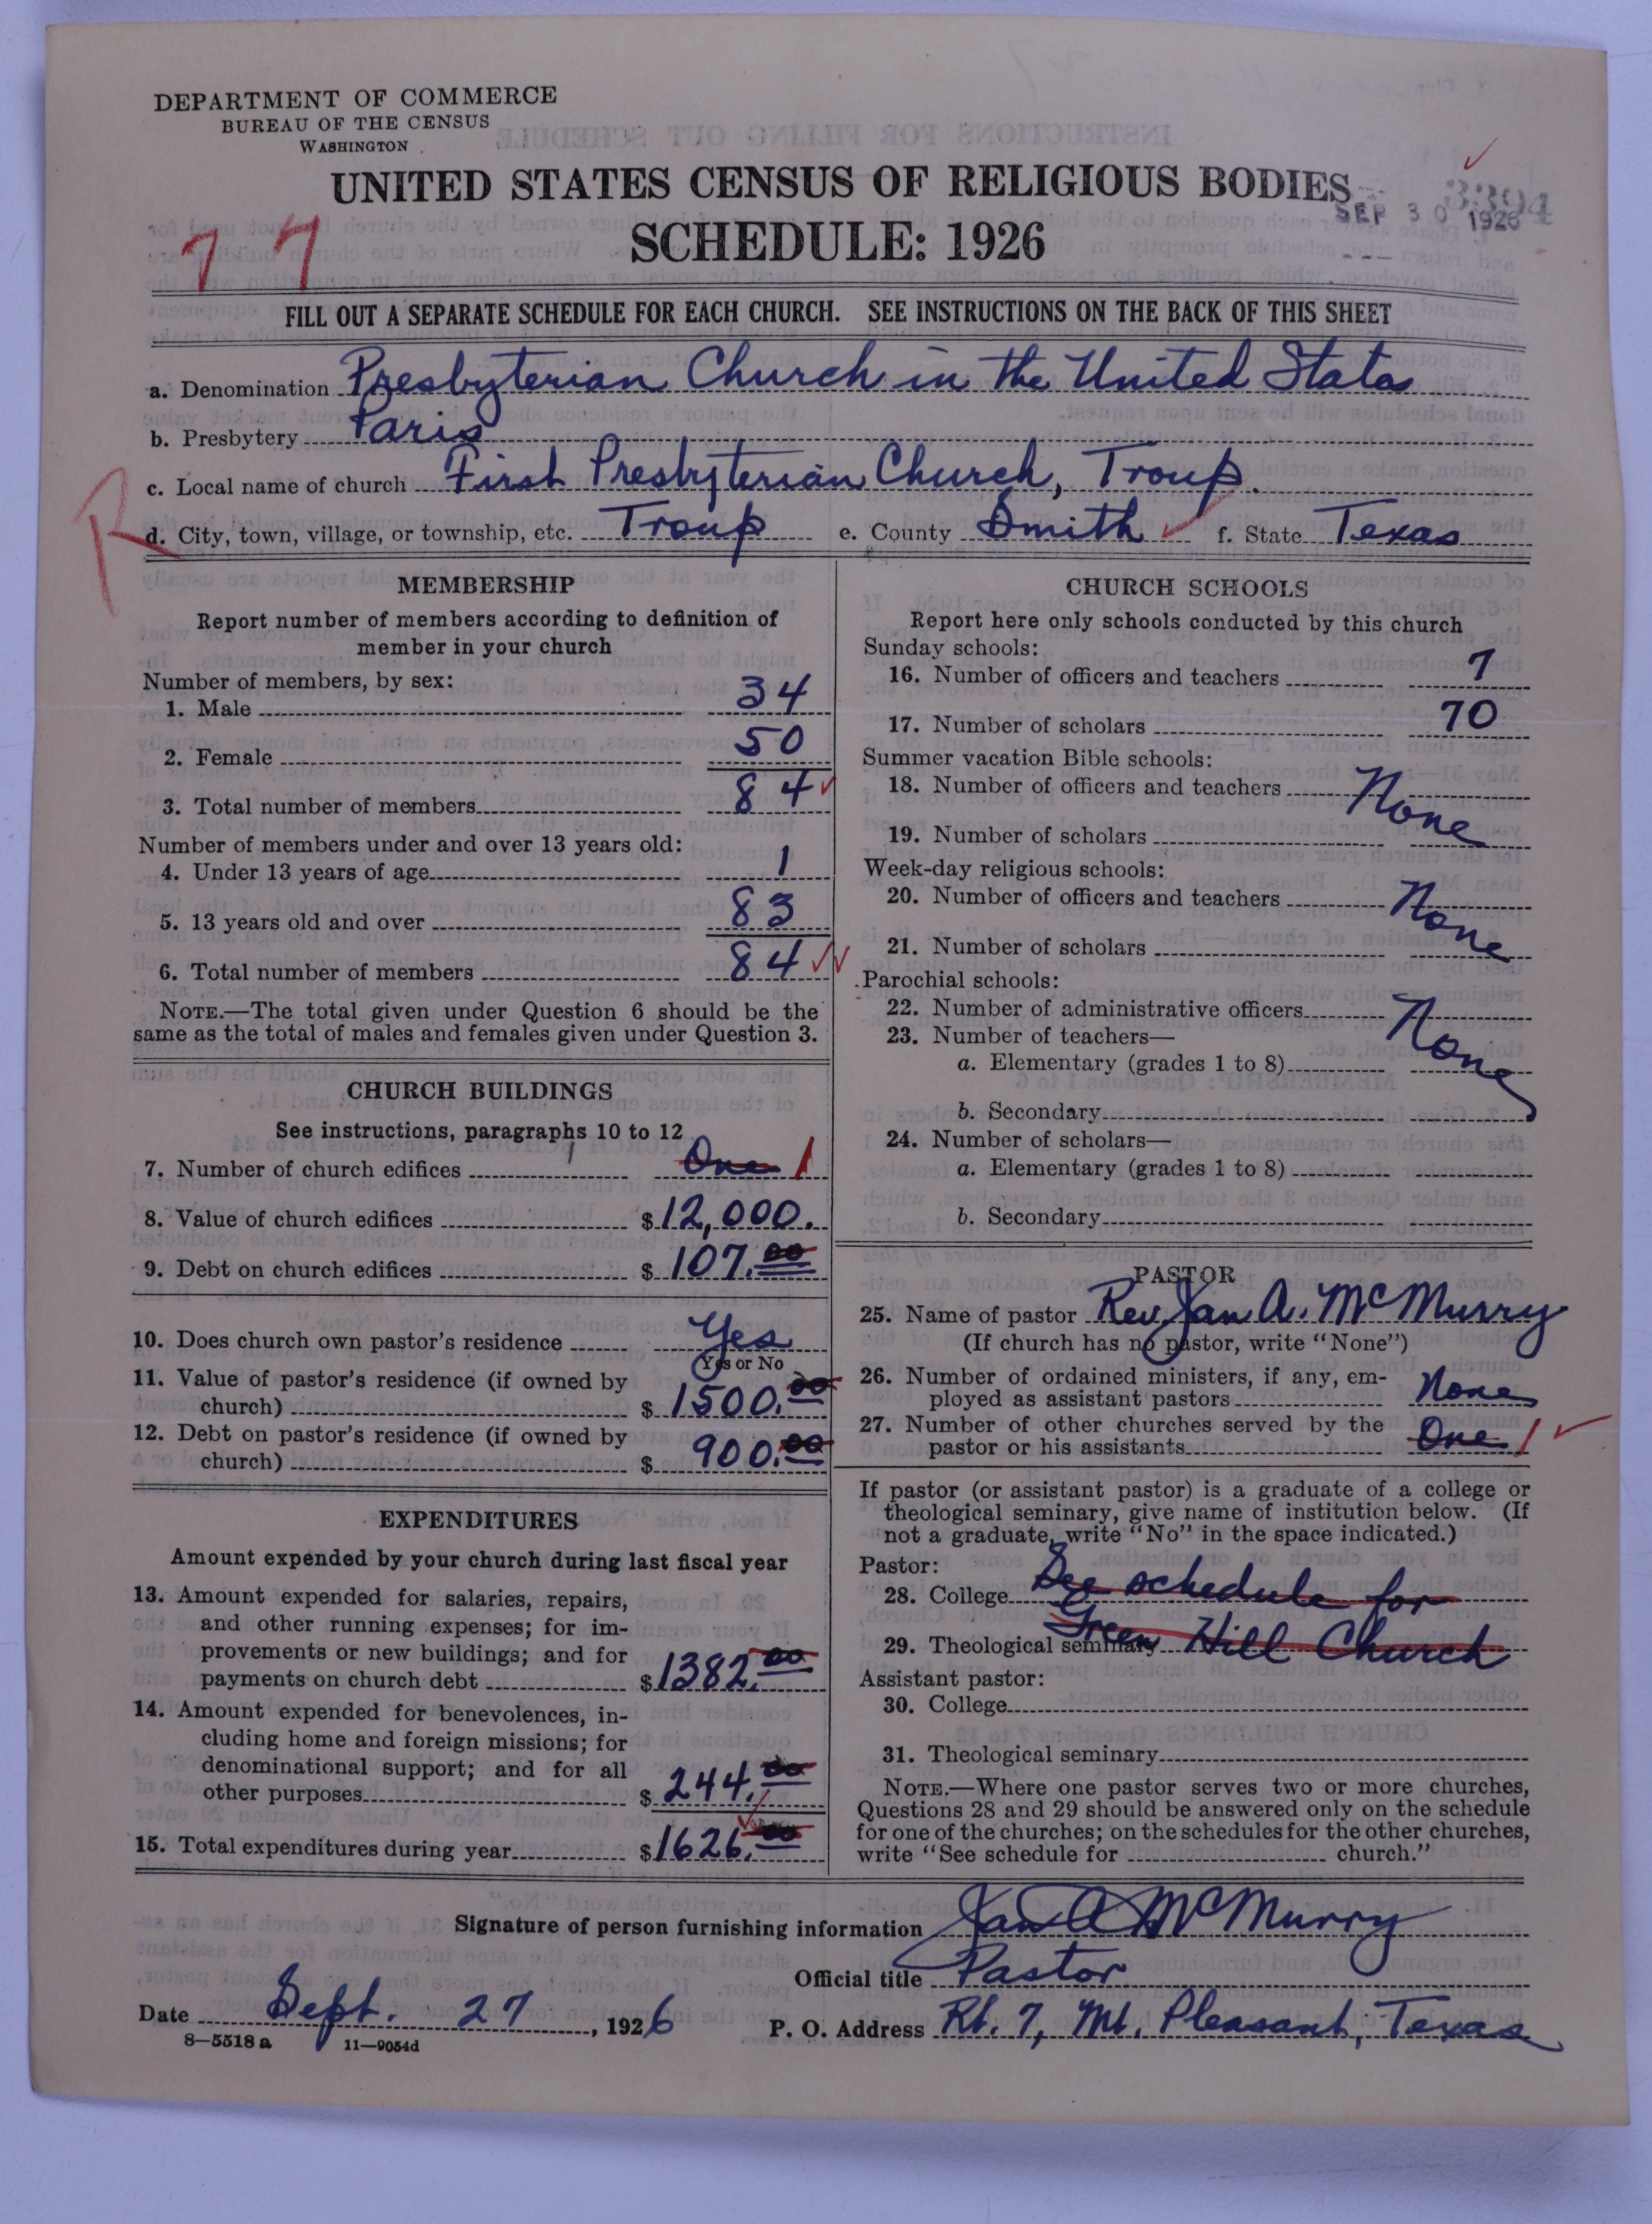 DEPARTMENT OF COMMERCE
BUREAU OF THE CENSUS
WASHINGTON
UNITED STATES CENSUS OF RELIGIOUS BODIES
3394
SEP 30 1926
SCHEDULE: 1926
7 7
FILL OUT A SEPARATE SCHEDULE FOR EACH CHURCH. SEE INSTRUCTIONS ON THE BACK OF THIS SHEET
a. Denomination Presbyterian Church in the United States
b. Presbytery Paris
c. Local name of church First Presbyterian Church, Troup.
R
d. City, town, village, or township, etc. Troup e. County Smith f. State Texas
MEMBERSHIP
Report number of members according to definition of
member in your church
Number of members, by sex:
1. Male 34
2. Female 50
3. Total number of members 84
Number of members under and over 13 years old:
4. Under 13 years of age 1
5. 13 years old and over 83
6. Total number of members 84
NOTE.—The total given under Question 6 should be the
same as the total of males and females given under Question 3.
CHURCH BUILDINGS
See instructions, paragraphs 10 to 12
7. Number of church edifices One 1
8. Value of church edifices $12,000.
9. Debt on church edifices $107.00
10. Does church own pastor's residence Yes
Yes or No
11. Value of pastor's residence (if owned by
church) $1500.00
12. Debt on pastor's residence (if owned by
church) $900.00
EXPENDITURES
Amount expended by your church during last fiscal year
13. Amount expended for salaries, repairs,
and other running expenses; for im-
provements or new buildings; and for
payments on church debt $1382.00
14. Amount expended for benevolences, in-
cluding home and foreign missions; for
denominational support; and for all
other purposes $244.00
15. Total expenditures during year $1626.00
CHURCH SCHOOLS
Report here only schools conducted by this church
Sunday schools:
16. Number of officers and teachers 7
17. Number of scholars 70
Summer vacation Bible schools:
18. Number of officers and teachers None
19. Number of scholars
Week-day religious schools:
20. Number of officers and teachers None
21. Number of scholars
Parochial schools:
22. Number of administrative officers None
23. Number of teachers—
a. Elementary (grades 1 to 8)
b. Secondary
24. Number of scholars—
a. Elementary (grades 1 to 8)
b. Secondary
PASTOR
25. Name of pastor Rev. Jas A. McMurry
(If church has no pastor, write "None")
26. Number of ordained ministers, if any, em-
ployed as assistant pastors None
27. Number of other churches served by the
pastor or his assistants One 1
If pastor (or assistant pastor) is a graduate of a college or
theological seminary, give name of institution below. (If
not a graduate, write "No" in the space indicated.)
Pastor:
28. College See schedule for
29. Theological seminary Green Hill Church
Assistant pastor:
30. College
31. Theological seminary
NOTE.—Where one pastor serves two or more churches,
Questions 28 and 29 should be answered only on the schedule
for one of the churches; on the schedules for the other churches,
write "See schedule for church."
Signature of person furnishing information Jas A McMurry
Official title Pastor
Date Sept. 27, 1926
P. O. Address Rt. 7, Mt. Pleasant, Texas
8—5518 a 11—9054d